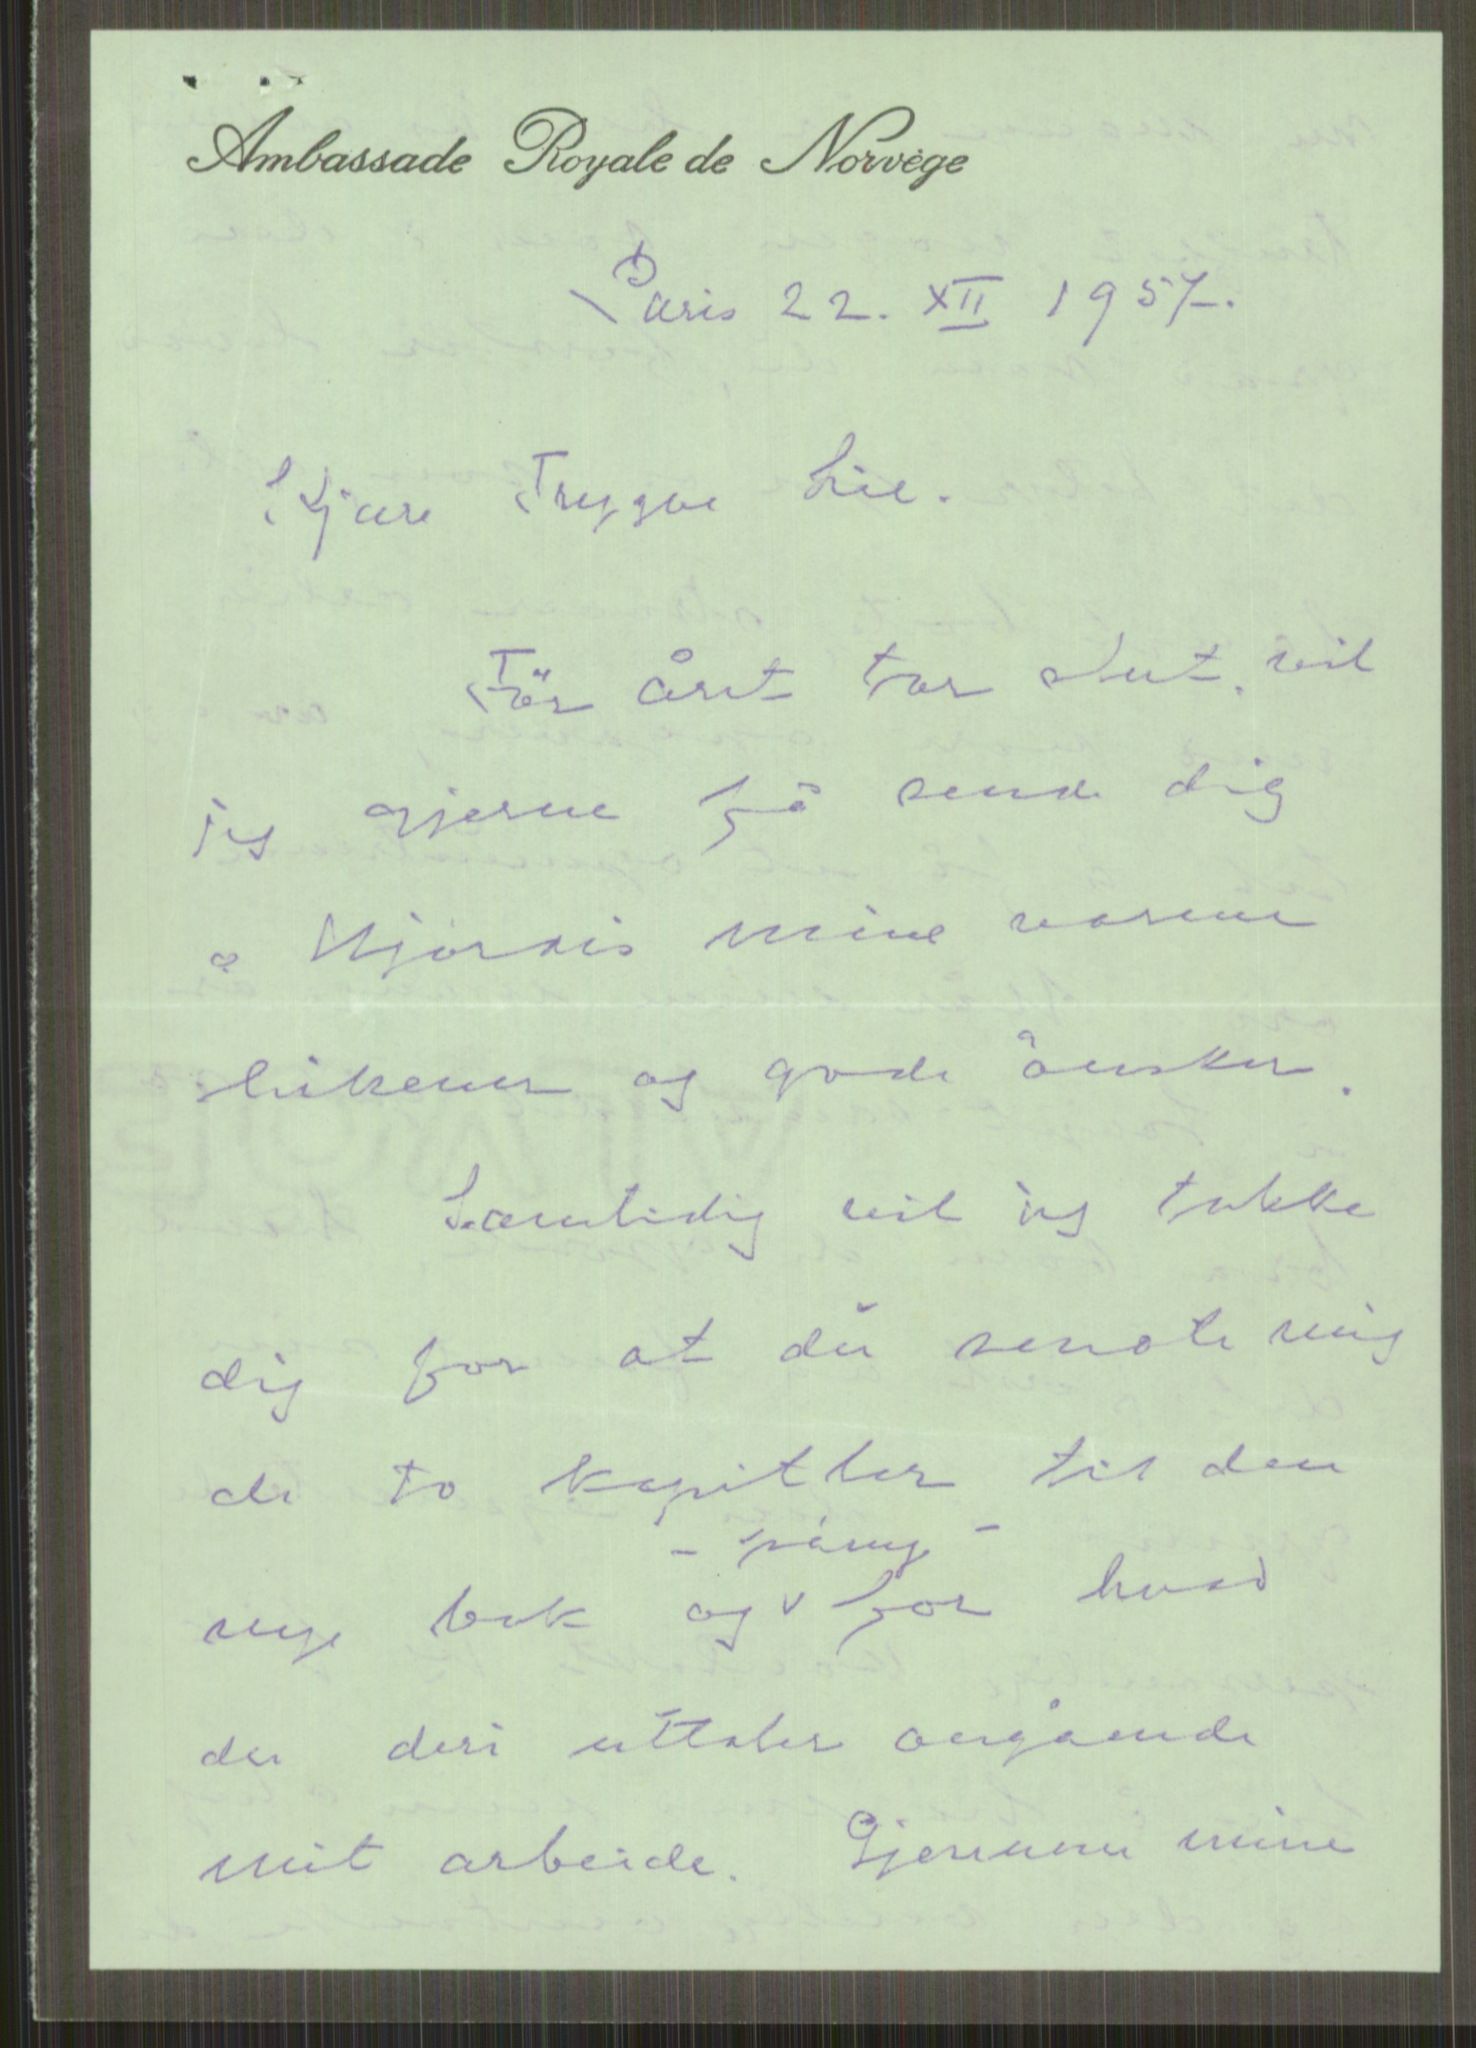 Ambassade Royale de Norvège
Paris 22. XII 1957.
Kjære Trygve Lie.
Før året tar slut, vil
jeg gjerne få sende dig
og Hjørdis mine varme
hilsener og gode ønsker.
Samtidig vil jeg takke
dig for at du sendte mig
de to kapitler til den
nye bok og for hvad
- påny -
du deri uttaler angående
mit arbeide. Gjennem mine